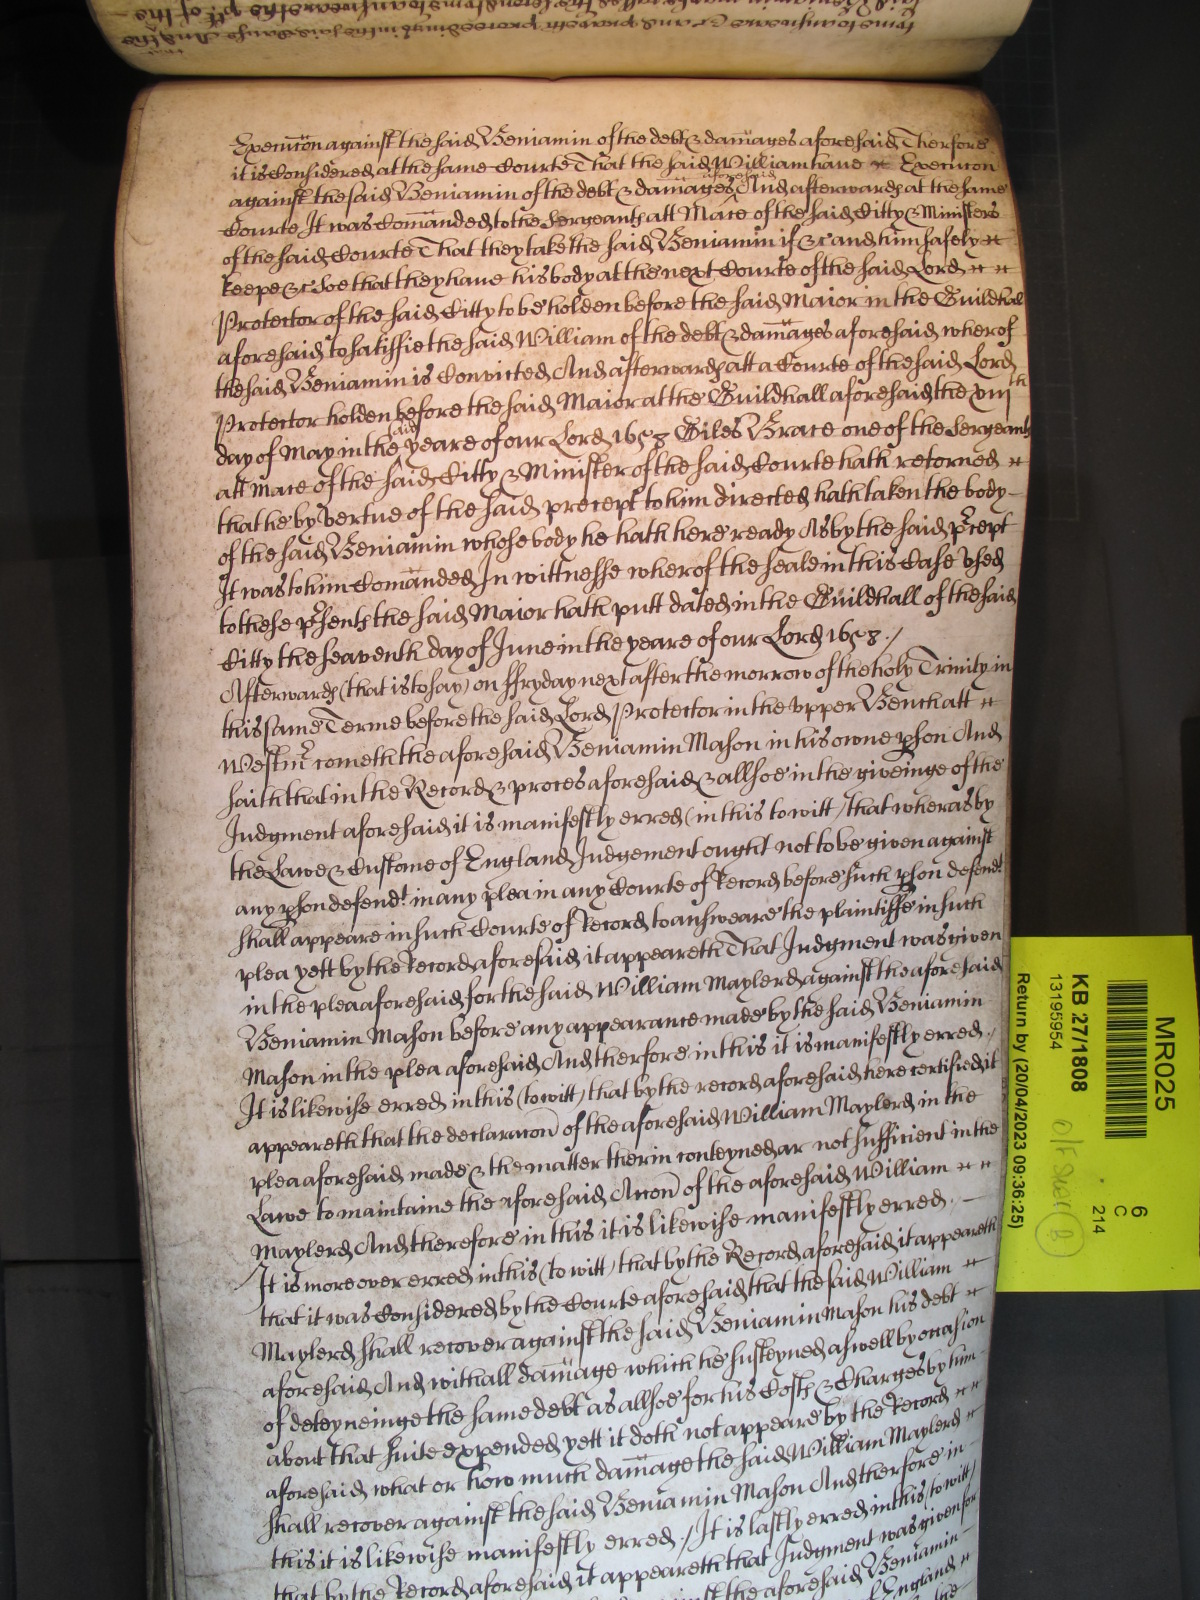 Execucon against the said Beniamin of the debt & damages aforesaid Therfore
it is Considered at the same Courte That the said William haue Execucon
against the said Beniamin of the debt & damages aforesaid And afterwards at the same
Courte It was Comanded to the Sergeants att Mace of the said Citty & Ministers
of the said Courte That they take the said Beniamin if &c and him safely
keepe &c Soe that they haue his body at the next Courte of the said Lord
Protector of the said Citty to be holden before the said Maior in the Guildhall
aforesaid to satisfie the said William of the debt & damages aforesaid wherof
the said Beniamin is Convicted And afterwards att a Courte of the said Lord
Protector holden before the said Maior at the Guildhall aforesaid the xviijth
day of May in the said yeare of our Lord 1658 Giles Brace one of the Sergeants
att Mace of the said Citty & Minister of the said Courte hath retorned
that he by vertue of the said precept to him directed hath taken the body
of the said Beniamin whose body he hath here ready As by the said pcept
It was to him Comanded In wittnesse wherof the seale in this Case vsed
to these psents the said Maior hath putt dated in the Guildhall of the said
Citty the seaventh day of June in the yeare of our Lord 1658 ./
Afterwards (that is to say) on ffryday next after the morrow of the holy Trinity in
this same Terme before the said Lord Protector in the vpper Bench att
Westmr cometh the aforesaid Beniamin Mason in his owne pson And
saith that in the Record & proces aforesaid & allsoe in the giveinge of the
Judgment aforesaid it is manifestly erred (in this to witt) that wheras by
the Lawe & Custome of England Judgement ought not to be given against
any pson defendt in any plea in any Courte of Record before such pson defendt
shall appeare in such Courte of Record to answeare the plaintiffe in such
plea yett by the Record aforesaid it appeareth That Judgment was given
in the plea aforesaid for the said William Maylerd against the aforesaid
Beniamin Mason before any appearance made by the said Beniamin
Mason in the plea aforesaid And therfore in this it is manifestly erred ./
It is likewise erred in this (to witt) that by the record aforesaid here certified it
appeareth that the declaracon of the aforesaid William Maylerd in the
plea aforesaid made & the matter therin conteyned ar not sufficient in the
Lawe to maintaine the aforesaid Accon of the aforesaid William
Maylerd And therefore in this it is likewise manifestly erred.
It is moreover erred in this (to witt) that by the Record aforesaid it appeareth
that it was Considered by the Courte aforesaid that the said William
Maylerd shall recover against the said Beniamin Mason his debt
aforesaid And withall damage which he susteyned aswell by occasion
of deteyneinge the same debt as allsoe for his Costs & Charges by him
about that suite expended yett it doth not appeare by the Record
aforesaid what or how much damage the said William Maylerd
shall recover against the said Beniamin Mason And therfore in
this it is likewise manifestly erred ./ It is lastly erred in this (to witt)
that by the Record aforesaid it appeareth that Judgment was given for
the aforesaid Beniamin
of England
MR025
6
C
214
KB 27/1808
13195954
Return by (20/04/2023 09:36:25)